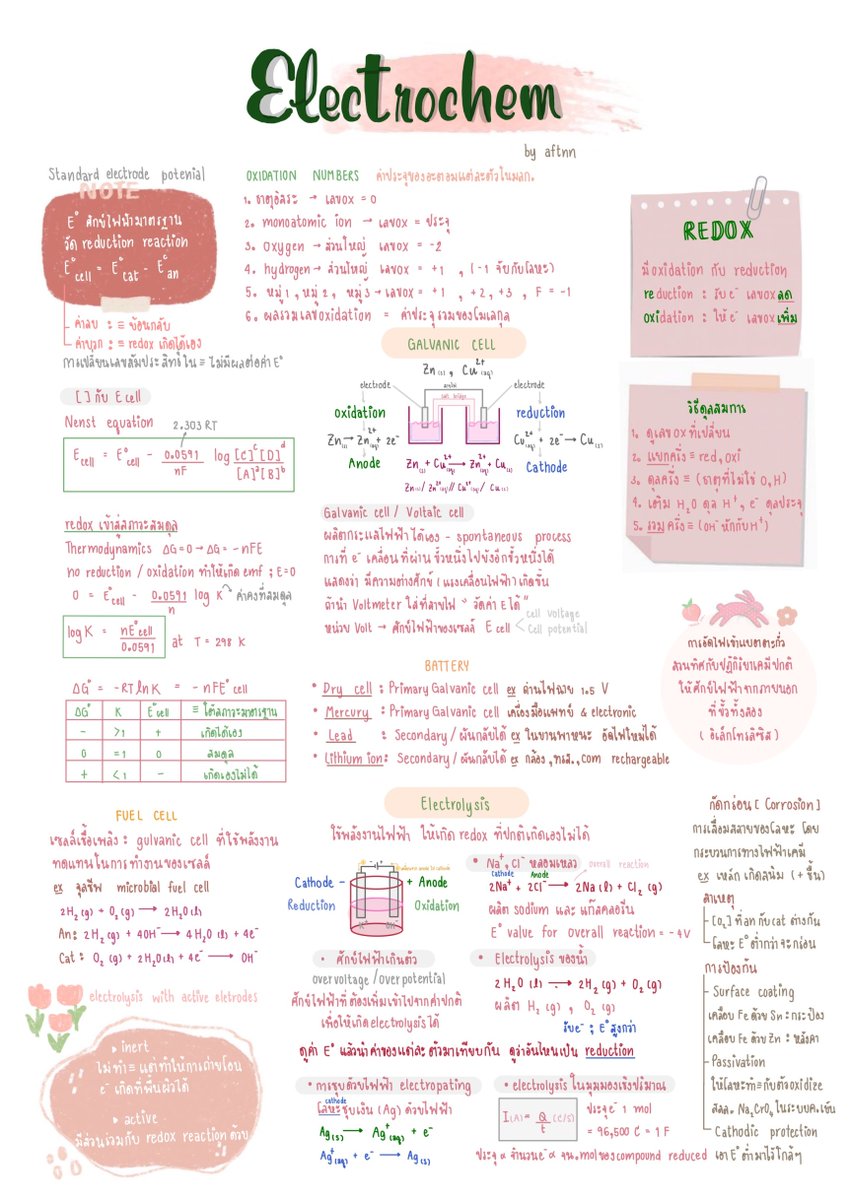 Electrochem
by aftnn
Standard electrode potenial
NOTE
E° ศักย์ไฟฟ้ามาตรฐาน
วัด reduction reaction
E°cell = E°cat - E°an
ค่าลบ : ≡ ย้อนกลับ
ค่าบวก : ≡ redox เกิดได้เอง
การเปลี่ยนเลขสัมประสิทธ์ใน ≡ ไม่มีผลต่อค่า E°
OXIDATION NUMBERS ค่าประจุของอะตอมแต่ละตัวในมลก.
1. ธาตุอิสระ → เลขox = 0
2. monoatomic ion → เลขox = ประจุ
3. oxygen → ส่วนใหญ่ เลขox = -2
4. hydrogen → ส่วนใหญ่ เลขox = +1 , (-1 จับกับโลหะ)
5. หมู่1, หมู่2, หมู่3 → เลขox = +1 , +2, +3 , F = -1
6. ผลรวมเลขoxidation = ค่าประจุรวมของโมเลกุล
REDOX
มี oxidation กับ reduction
reduction : รับe⁻ เลขox ลด
oxidation : ให้e⁻ เลขox เพิ่ม
GALVANIC CELL
Zn(s) , Cu²⁺(aq)
electrode
สายไฟ
salt bridge
electrode
oxidation
Zn(s) → Zn²⁺(aq) + 2e⁻
Anode
reduction
Cu²⁺(aq) + 2e⁻ → Cu(s)
Cathode
Zn(s) + Cu²⁺(aq) → Zn²⁺(aq) + Cu(s)
Zn(s) / Zn²⁺(aq) // Cu²⁺(aq) / Cu(s)
[ ] กับ E cell
Nenst equation
2.303 RT
Ecell = E°cell - 0.0591/nF log [C]ᶜ[D]ᵈ/[A]ᵃ[B]ᵇ
วิธีดุลสมการ
1. ดูเลขox ที่เปลี่ยน
2. แยกครึ่ง ≡ red, oxi
3. ดุลครึ่ง ≡ (ธาตุที่ไม่ใช่ O,H)
4. เติม H₂O ดุล H⁺, e⁻ ดุลประจุ
5. รวมครึ่ง ≡ (OH⁻ หักกับ H⁺)
redox เข้าสู่สภาวะสมดุล
Thermodynamics ΔG=0 → ΔG = -nFE
no reduction / oxidation ทำให้เกิด emf ; E=0
0 = E°cell - 0.0591/n log K → ค่าคงที่สมดุล
log K = nE°cell/0.0591 at T = 298 K
Galvanic cell / Voltaic cell
ผลิตกระแสไฟฟ้าได้เอง - spontaneous process
การที่ e⁻ เคลื่อนที่ผ่านขั้วหนึ่งไปยังอีกขั้วหนึ่งได้
แสดงว่า มีความต่างศักย์ (แรงเคลื่อนไฟฟ้า) เกิดขึ้น
ถ้านำ Voltmeter ใส่ที่สายไฟ " วัดค่า E ได้ "
หน่วย Volt → ศักย์ไฟฟ้าของเซลล์ E cell < cell voltage
Cell potential
การอัดไฟเข้าแบตตะกั่ว
สวนทิศกับปฏิกิริยาเคมีปกติ
ให้ศักย์ไฟฟ้าจากภายนอก
ที่ขั้วทั้งสอง
( อิเล็กโทรลิซิส )
ΔG° = -RT ln K = -nFE°cell
ΔG° K E°cell ≡ ใต้สภาวะมาตรฐาน
- >1 + เกิดได้เอง
0 =1 0 สมดุล
+ <1 - เกิดเองไม่ได้
BATTERY
* Dry cell : Primary Galvanic cell ex ถ่านไฟฉาย 1.5 V
* Mercury : Primary Galvanic cell เครื่องมือแพทย์ & electronic
* Lead : Secondary / ผันกลับได้ ex ในยานพาหนะ อัดไฟใหม่ได้
* Lithium ion : Secondary / ผันกลับได้ ex กล้อง, ทรส., com rechargeable
FUEL CELL
เซลล์เชื้อเพลิง : gulvanic cell ที่ใช้พลังงาน
ทดแทนในการทำงานของเซลล์
ex จุลชีพ microbial fuel cell
2H₂(g) + O₂(g) → 2H₂O(l)
An: 2H₂(g) + 4OH⁻ → 4H₂O(l) + 4e⁻
Cat : O₂(g) + 2H₂O(l) + 4e⁻ → OH⁻
Electrolysis
ใช้พลังงานไฟฟ้า ให้เกิด redox ที่ปกติเกิดเองไม่ได้
Cathode -
Reduction
+ Anode
Oxidation
• Na⁺, Cl⁻ หลอมเหลว
overall reaction
Cathode Anode
2Na⁺ + 2Cl⁻ → 2Na(l) + Cl₂(g)
ผลิต sodium และ แก๊สคลอรีน
E° value for overall reaction = -4V
• ศักย์ไฟฟ้าเกินตัว
overvoltage / overpotential
ศักย์ไฟฟ้าที่ต้องเพิ่มเข้าไปจากค่าปกติ
เพื่อให้เกิด electrolysis ได้
• Electrolysis ของน้ำ
2H₂O(l) → 2H₂(g) + O₂(g)
ผลิต H₂(g) , O₂(g)
รับe⁻ ; E°สูงกว่า
ดูค่า E° แล้วนำค่าของแต่ละตัวมาเทียบกัน ดูว่าอันไหนเป็น reduction
กัดกร่อน [ Corrosion ]
การเสื่อมสลายของโลหะ โดย
กระบวนการทางไฟฟ้าเคมี
ex เหล็กเกิดสนิม (+ชื้น)
สาเหตุ
[O₂] ที่ an กับ cat ต่างกัน
โลหะ E° ต่ำกว่าจะกร่อน
การป้องกัน
Surface coating
เคลือบ Fe ด้วย Sn : กระป๋อง
เคลือบ Fe ด้วย Zn : หลังคา
Passivation
ให้โลหะทำ ≡ กับตัวoxidize
สลล. Na₂CrO₄ ในระบบค.เย็น
Cathodic protection
เอา E° ต่ำมาไว้ใกล้ๆ
electrolysis with active eletrodes
▸ inert
ไม่ทำ ≡ แต่ทำให้การถ่ายโอน
e⁻ เกิดที่พื้นผิวได้
▸ active
มีส่วนร่วมกับ redox reaction ด้วย
• การชุบด้วยไฟฟ้า electropating
cathode
โลหะชุบเงิน (Ag) ด้วยไฟฟ้า
Ag(s) → Ag⁺(aq) + e⁻
Ag⁺(aq) + e⁻ → Ag(s)
• electrolysis ในมุมมองเชิงปริมาณ
I(A) = Q/t (C/S)
ประจุe⁻ 1 mol
= 96,500 C = 1 F
ประจุ ∝ จำนวนe⁻ ∝ จน.molของcompound reduced